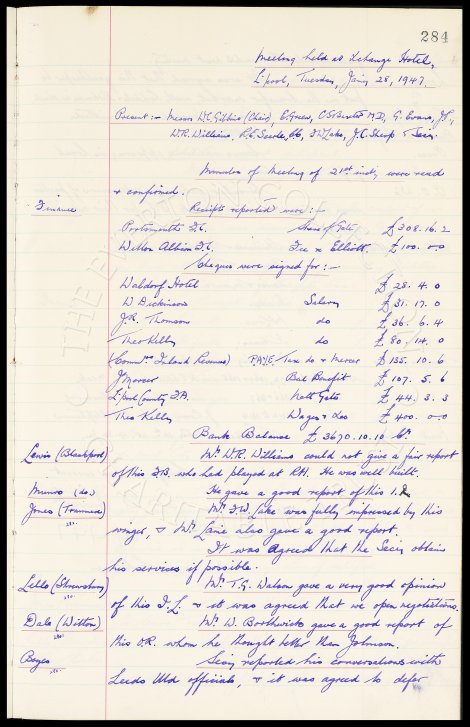 284
Meeting held at Exchange Hotel,
L'pool, Tuesday, Jan'y 28, 1947.
Present:- Messrs W.C. Gibbins (Chair), E. Green, C.S. Baxter M.D., G. Evans, J.P.,
W.R. Williams, R.E. Searle, F.W. Lake, J.C. Sharp & Sec'y.
Minutes of Meeting of 21st inst, were read
& confirmed.
Finance
Receipts reported were:-
Portsmouth F.C. Share of Gate £308.16.2
Witton Albion F.C. Fee re Elliott. £100.0.0
Cheques were signed for:-
Waldorf Hotel £28.4.0
W Dickinson Salary £31.17.0
J.R. Thomson do £36.6.4
Theo Kelly do £80.14.0
Comm'rs Inland Revenue) P.A.Y.E. Tax do & Mercer £135.10.6
J Mercer Bal Benefit £107.5.6
L'pool County F.A. Nett Gate £44.3.3
Theo Kelly Wages & do £400.0.0
Bank Balance £3670.10.10 Cr.
Lewis (Blackpool)
Mr. W.R. Williams could not give a fair report
of this F.B. who had played at R.H. He was well built.
Munro (do)
He gave a good report of this
Jones (Tranmere)
Mr. F.W. Lake was fully impressed by this
winger, & Mr. also gave a good report.
It was agreed that the Sec'y obtain
his services if possible.
Lello (Shrewsbury)
Mr. T.G. Watson gave a very good opinion
of this I.L. & it was agreed that we open negotiations.
Dale (Witton)
Mr. W. Borthwick gave a good report of
this O.R. whom he thought better than Johnson.
Boyes
Sec'y reported his conversations with
Leeds Utd officials, & it was agreed to defer